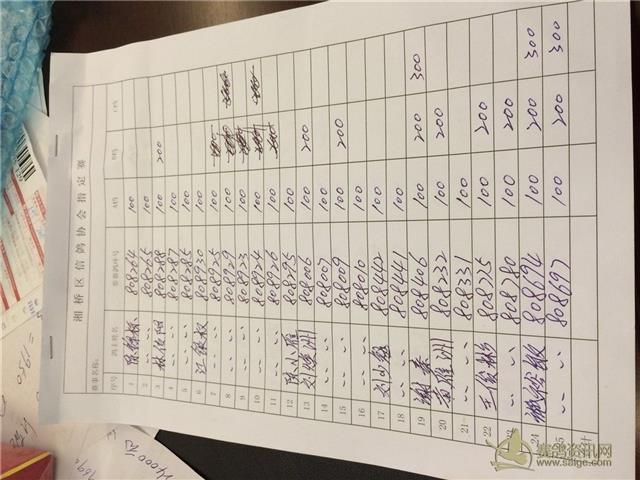 湘桥区信鸽协会指定赛
赛事名称:
序号 鸽主姓名 参赛鸽序号 A档 B档 C档
1 808264 100
2 〃 808265 100
3 808288 100 200
4 〃 808287 100
5 〃 808285 100
6 808930 100
7 〃 808925 100
8 〃 808929 100
9 〃 808923 100
10 〃 808924 100
11 〃 808926 100
12 陈小雁 808295 100
13 刘焕洲 808006 100 200
14 〃 808007 100
15 〃 808009 100 200
16 〃 808010 100
17 808442 100
18 〃 808441 100
19 谢泰 808406 100 200 300
20 808232 100 200
21 〃 808331 100
22 王俊彬 808225 100 200
23 〃 808280 100 200
24 808694 100 200 300
25 〃 808697 100 200 300
计
赛鸽资讯网
www.saige.com